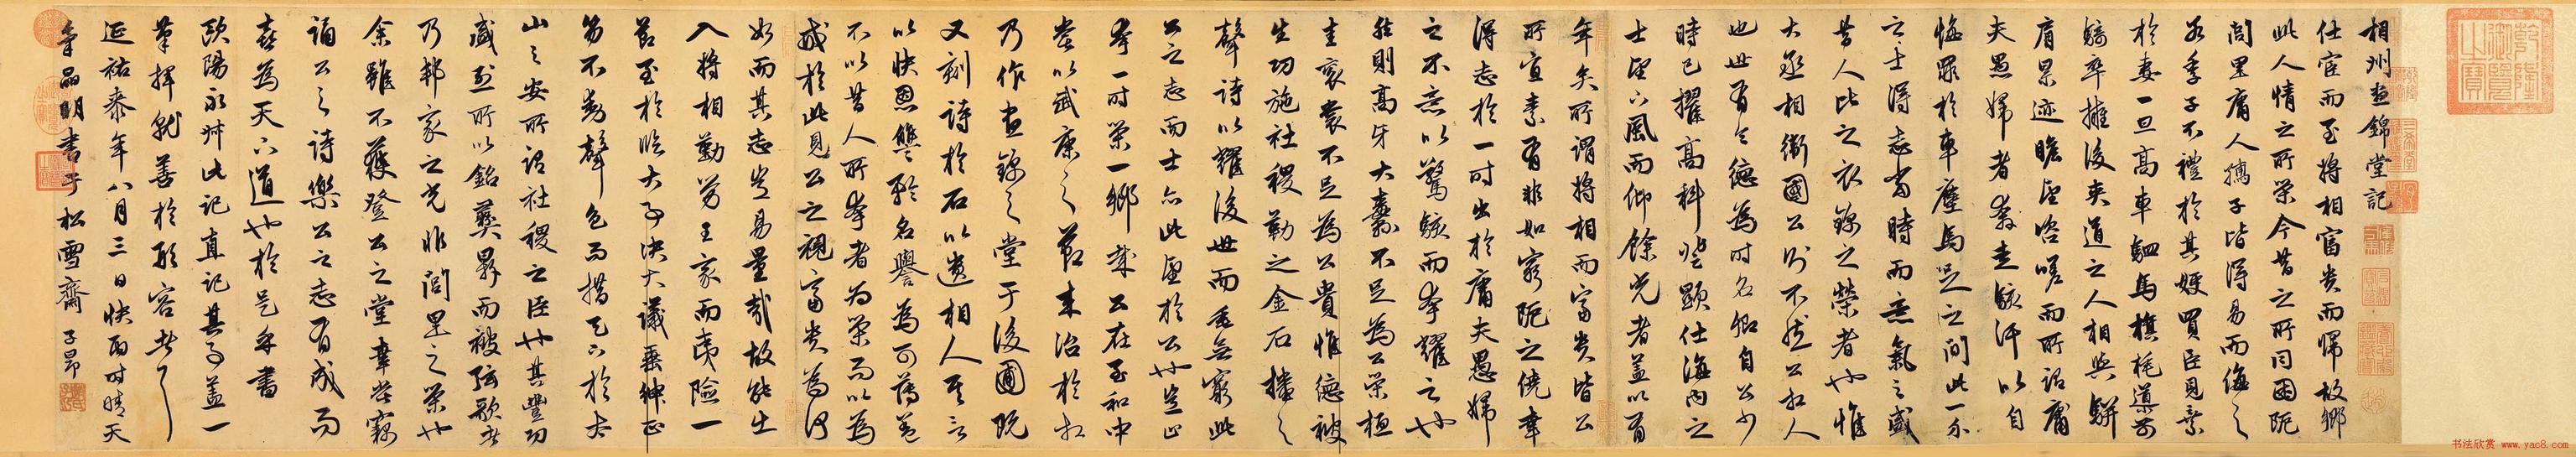 乾隆御覽之寶
相州昼錦堂記
仕宦而至將相富貴而歸故鄉
此人情之所榮今昔之所同困阨
閭里庸人孺子皆得易而侮之
若季子不禮於其嫂買臣見棄
於妻一旦高車駟馬旗旄導前
騎卒擁後夾道之人相與駢
肩累迹瞻望咨嗟而所謂庸
夫愚婦者奔走駭汗以自
悔罪於車塵馬足之間此一介
之士得志當時而意氣之盛
昔人比之衣錦之榮者也惟
大丞相衛國公則不然公相人
也世有令德為時名卿自公少
時已擢高科登顯仕海內之
士望下風而仰餘光者蓋以有
年矣所謂將相而富貴皆公
所宜素有非如窮阨之僥幸
得志於一時出於庸夫愚婦
之不意以驚駭而夸耀之也
然則高牙大纛不足為公榮桓
圭袞裳不足為公貴惟德被
生功施社稷勒之金石播之
聲詩以耀後世而垂無窮此
公之志而士亦此望於公也豈止
夸一時榮一鄉哉公在至和中
嘗以武康之節來治於相
乃作昼錦之堂于後圃既
又刻詩於石以遺相人其言
以快恩讎矜名譽為可薄蓋
不以昔人所夸者為榮而以為
戒於此見公之視富貴為何
如而其志豈易量哉故能出
入將相勤勞王家而夷險一
節至於臨大事決大議垂紳正
笏不動聲色而措天下於太
山之安所謂社稷之臣也其豐功
盛烈所以銘彝鼎而被弦歌者
乃邦家之光非閭里之榮也
余雖不獲登公之堂幸嘗竊
誦公之詩樂公之志有成而
喜為天下道也於是乎書
歐陽永叔此記真記其事蓋一
筆揮就善於形容者
延祐泰年八月三日快雨時晴天
氣品明書于松雪齋 子昂
书法欣赏 www.yac8.com